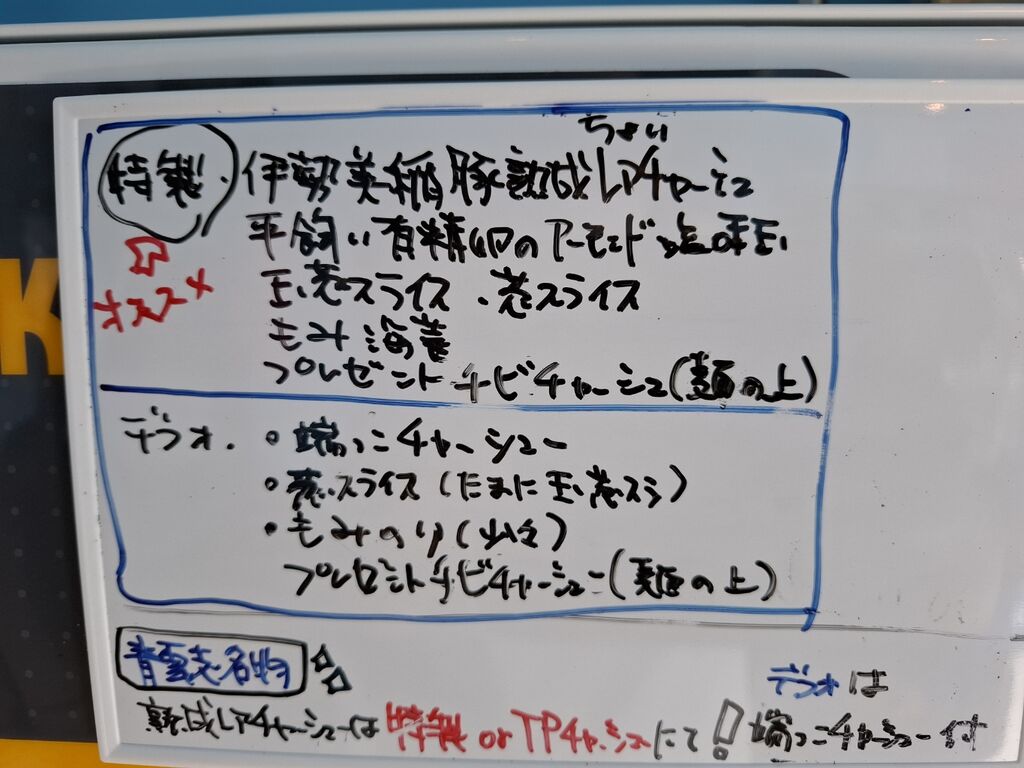 K
ちょい
特製・伊勢美稲豚熟成レアチャーシュ
平飼い有精卵のアーモンド燻味玉
オススメ
玉葱スライス・葱スライス
もみ海苔
プレゼントチビチャーシュ(麺の上)
デフォ.・端っこチャーシュー
・葱スライス(たまに玉葱スラ)
・もみのり(少々)
プレゼントチビチャーシュー(麺の上)
青雲志名物
デフォは
熟成レアチャーシューは特製orTPチャーシューにて!端っこチャーシュー付